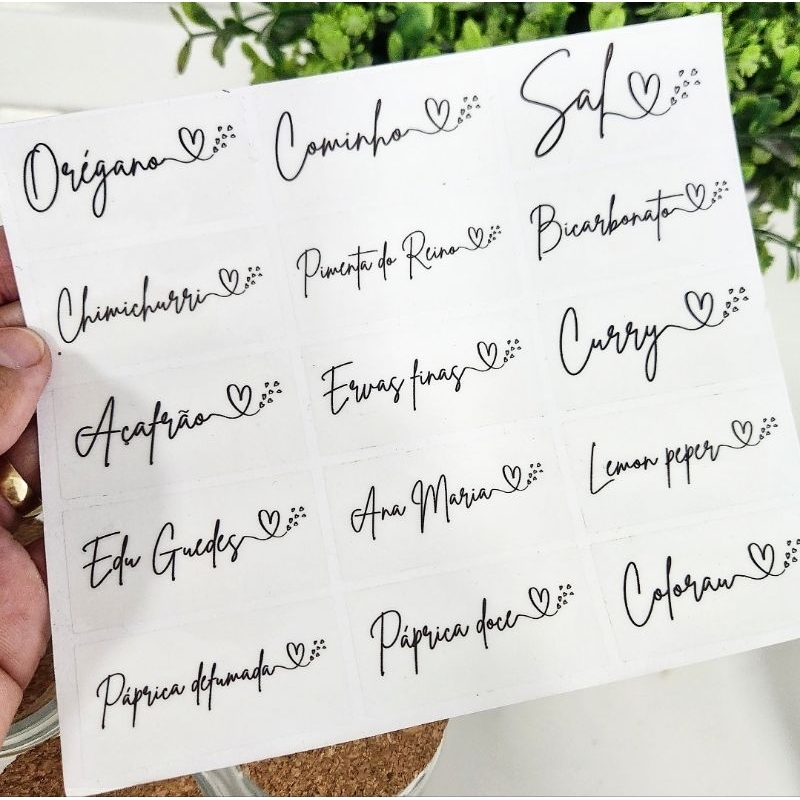 Orégano
Cominho
Sal
Chimichurri
Pimenta do Reino
Bicarbonato
Açafrão
Ervas finas
Curry
Edu Guedes
Ana Maria
Lemon peper
Páprica defumada
Páprica doce
Colorau